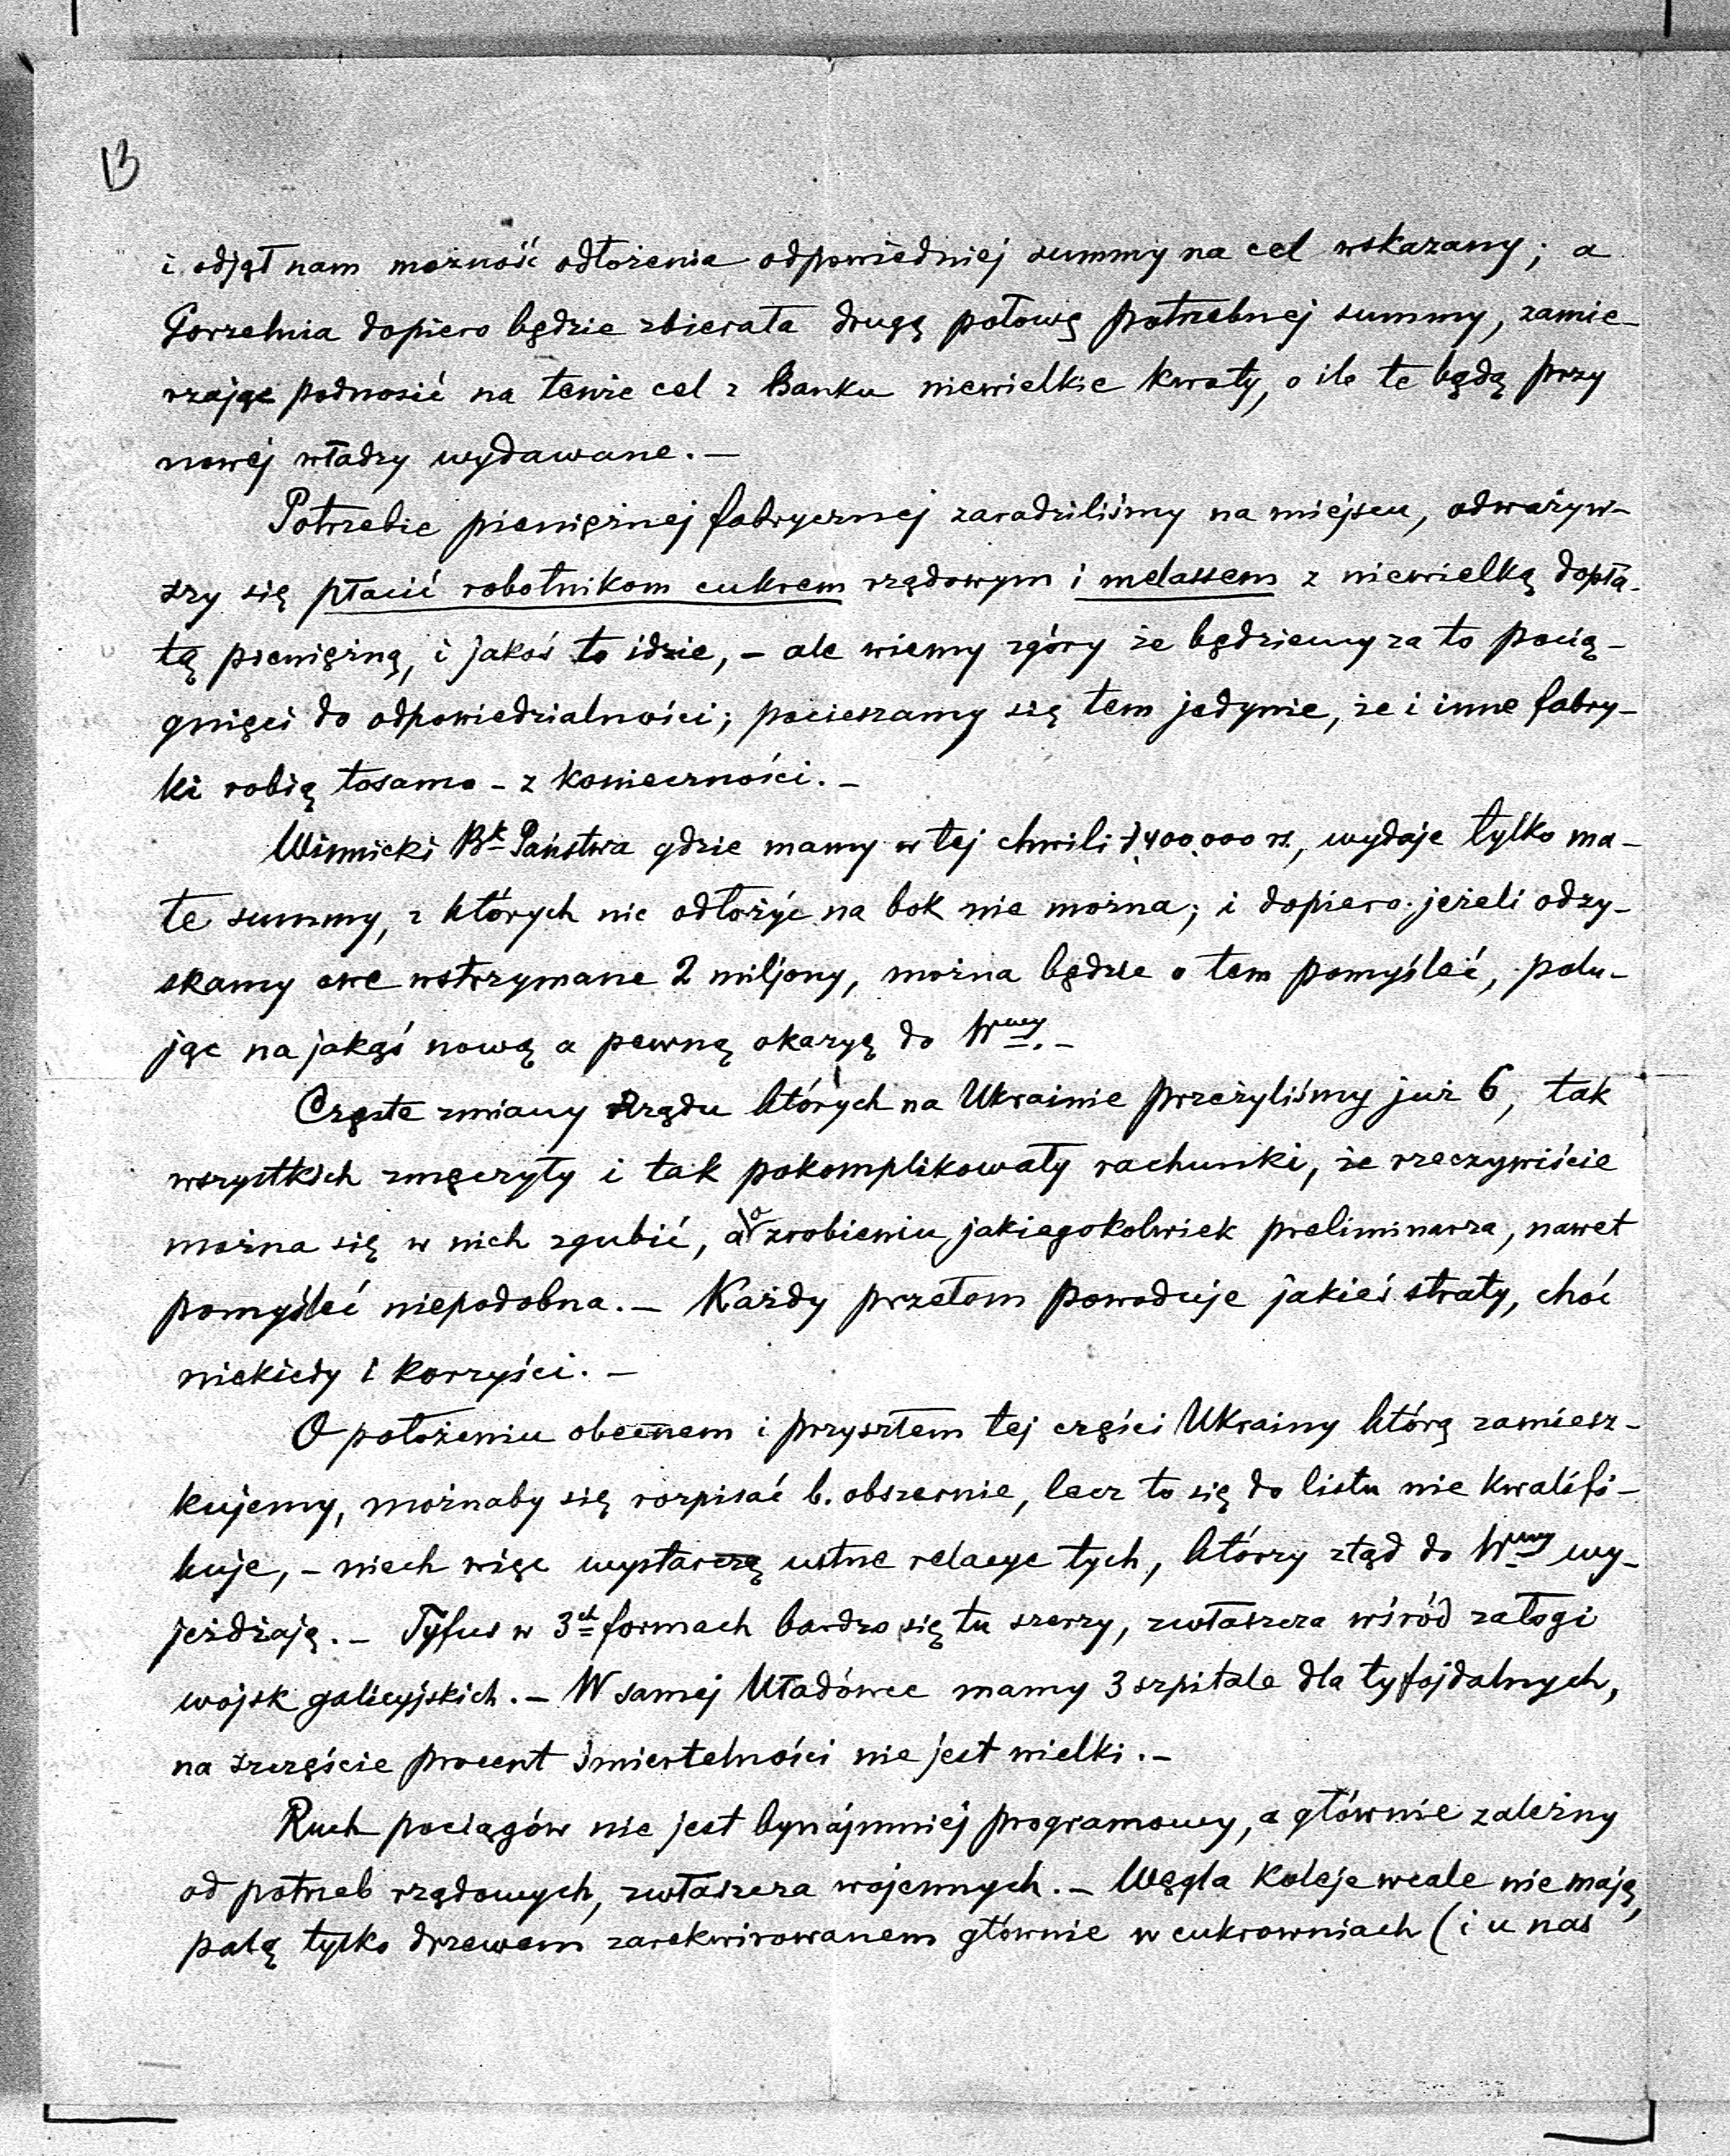 13
i odjął nam możność odłożenia odpowiedniej summy na cel wskazany; a
Gorzelnia dopiero będzie zbierała drugą połowę potrzebnej summy, zamie-
rzając podnosić na tenże cel z Banku niewielkie kwoty, o ile te będą przy
nowej władzy wydawane. –
Potrzebie pieniężnej fabrycznej zaradziliśmy na miejscu, odważyw-
szy się płacić robotnikom cukrem rządowym i melassem z niewielką dopła-
tą pieniężną, i jakoś to idzie, – ale wiemy zgóry że będziemy za to pocią-
gnięci do odpowiedzialności; pocieszamy się tem jedynie, że i inne fabry-
ki robią tosamo – z konieczności. –
Winnicki Bk Państwa gdzie mamy w tej chwili 1.400.000 rs., wydaje tylko ma-
łe summy, z których nic odłożyć na bok nie można; i dopiero jeżeli odzy-
skamy owe wstrzymane 2 miljony, można będzie o tem pomyśleć, polu-
jąc na jakąś nową a pewną okazyę do Wwy. –
Częste zmiany Rządu których na Ukrainie przeżyliśmy już 6, tak
wszystkich zmęczyły i tak pokomplikowały rachunki, że rzeczywiście
można się w nich zgubić, a o zrobieniu jakiegokolwiek preliminarza, nawet
pomyśleć niepodobna. – Każdy przełom powoduje jakieś straty, choć
niekiedy i korzyści. –
O położeniu obecnem i przyszłem tej części Ukrainy którą zamiesz-
kujemy, możnaby się rozpisać b. obszernie, lecz to się do listu nie kwalifi-
kuje, – niech więc wystarczą ustne relacye tych, którzy ztąd do Wwy wy-
jeżdżają. – Tyfus w 3ch formach bardzo się tu szerzy, zwłaszcza wśród załogi
wojsk galicyjskich. – W samej Uładówce mamy 3 szpitale dla tyfojdalnych,
na szczęście procent śmiertelności nie jest wielki. –
Ruch pociągów nie jest bynájmniéj programowy, a głównie zależny
od potrzeb rządowych, zwłaszcza wojennych. – Węgla koleje wcale nie mają,
palą tylko drzewem zarekwirowanem głównie w cukrowniach (i u nas